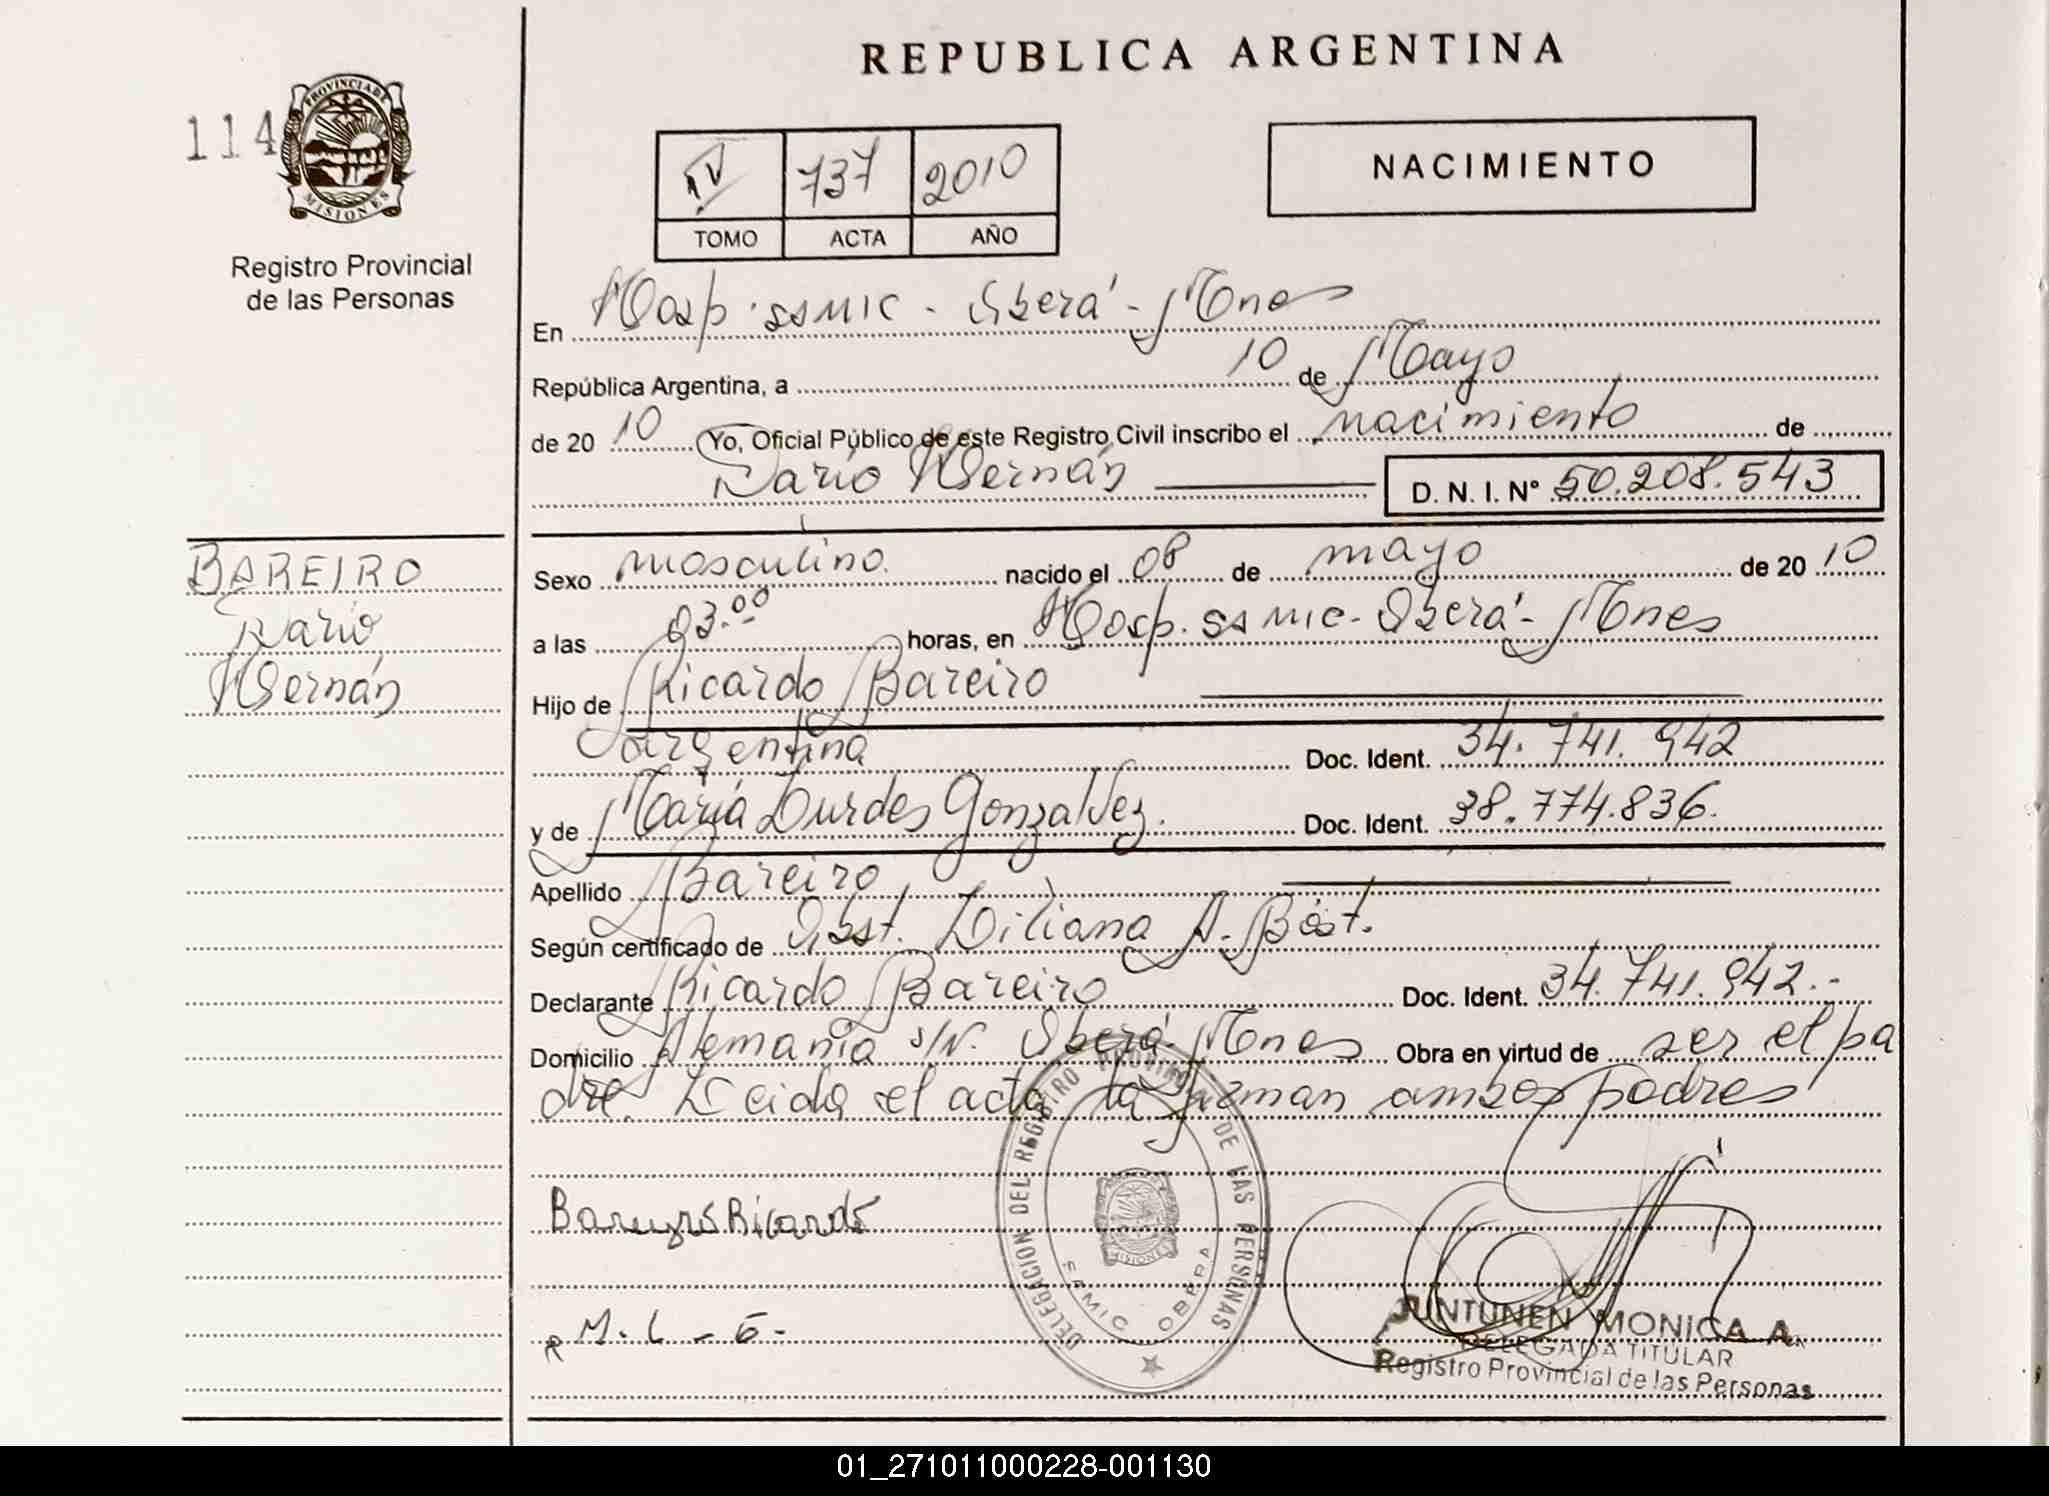 REPUBLICA ARGENTINA
114
PROVINCIA DE
MISIONES
Registro Provincial
de las Personas
IV 737 2010
TOMO ACTA AÑO
NACIMIENTO
En Hosp. SAMIC - Oberá - Mnes
República Argentina, a 10 de Mayo
de 20 10 Yo, Oficial Público de este Registro Civil inscribo el nacimiento de
Darío Hernán D. N. I. Nº 50.208.543
BAREIRO
Darío
Hernán
Sexo masculino nacido el 08 de mayo de 20 10
a las 03.00 horas, en Hosp. SAMIC - Oberá - Mnes
Hijo de Ricardo Bareiro
argentina Doc. Ident. 34.741.942
y de María Lurdes Gonzalvez. Doc. Ident. 38.774.836.
Apellido Bareiro
Según certificado de Obst. Liliana A. Bóst.
Declarante Ricardo Bareiro Doc. Ident. 34.741.942.-
Domicilio Alemania s/N. Oberá - Mnes Obra en virtud de ser el pa
dre. Leida el acta la firman ambos padres
Ricardo
M. L - G -
DELEGACION DEL REGISTRO PROVINCIAL DE LAS PERSONAS
SAMIC OBERA
JUNTUNEN MONICA A.
DELEGADA TITULAR
Registro Provincial de las Personas
01_271011000228-001130